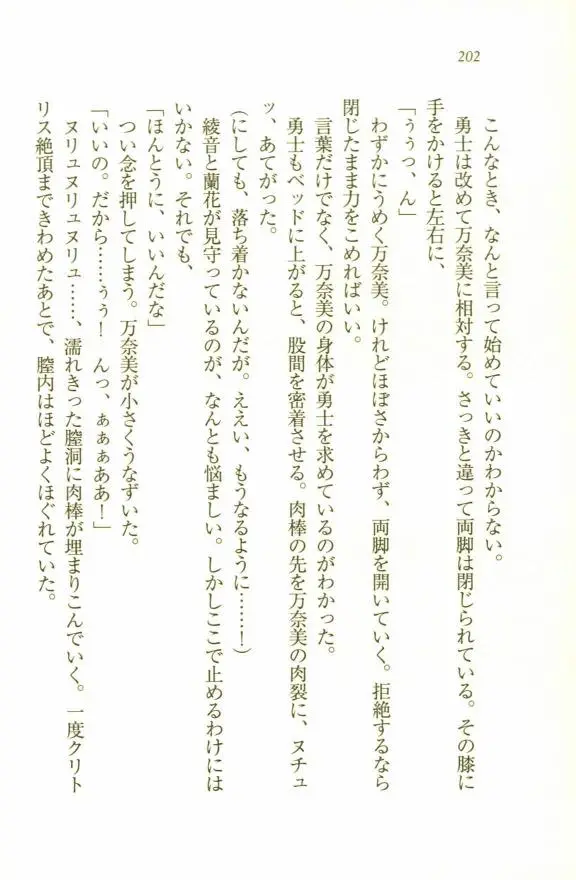 202
こんなとき、なんと言って始めていいのかわからない。
勇士は改めて万奈美に相対する。さっきと違って両脚は閉じられている。その膝に
手をかけると左右に、
「ぅぅっ、ん」
わずかにうめく万奈美。けれどほぼさからわず、両脚を開いていく。拒絶するなら
閉じたまま力をこめればいい。
言葉だけでなく、万奈美の身体が勇士を求めているのがわかった。
勇士もベッドに上がると、股間を密着させる。肉棒の先を万奈美の肉裂に、ヌチュ
ッ、あてがった。
(にしても、落ち着かないんだが。ええい、もうなるように……！)
綾音と蘭花が見守っているのが、なんとも悩ましい。しかしここで止めるわけには
いかない。それでも、
「ほんとうに、いいんだな」
つい念を押してしまう。万奈美が小さくうなずいた。
「いいの。だから……ぅぅ！　んっ、ぁぁぁああ！」
ヌリュヌリュヌリュ……、濡れきった膣洞に肉棒が埋まりこんでいく。一度クリト
リス絶頂まできわめたあとで、膣内はほどよくほぐれていた。